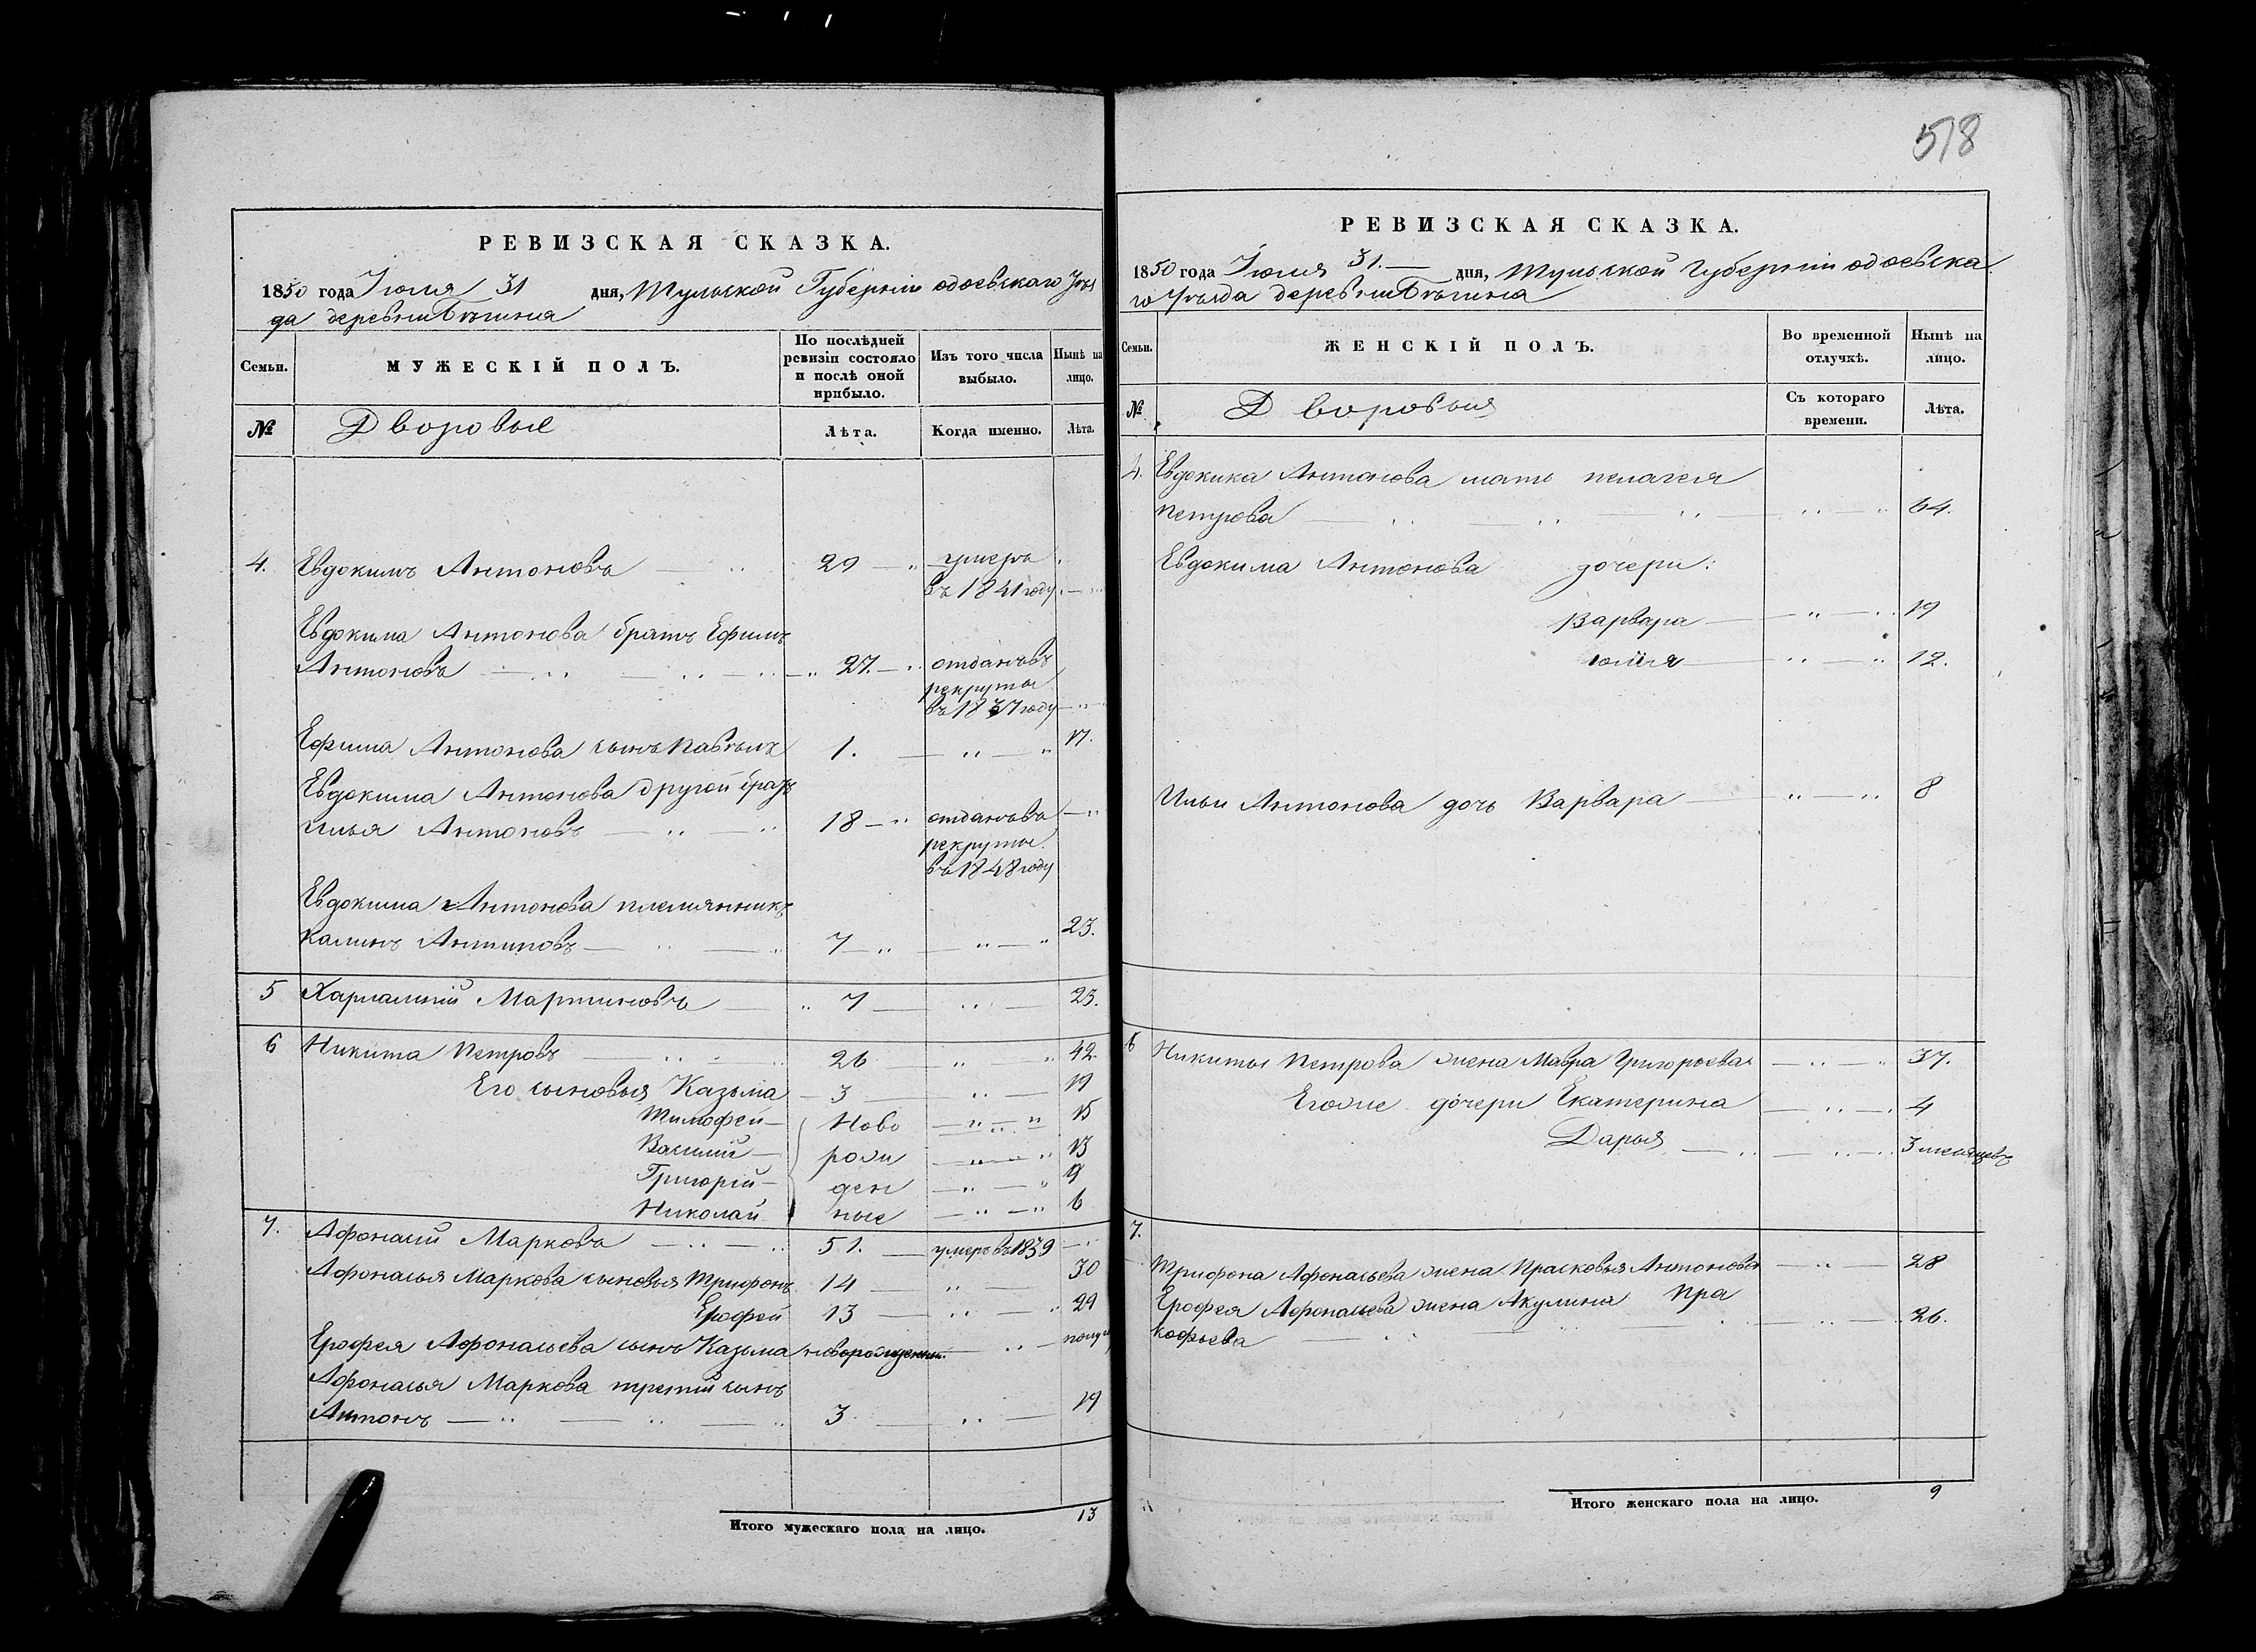 518
РЕВИЗСКАЯ СКАЗКА.
1850 года Іюля 31 дня, Тульской Губерніи одоевскаго Уѣз
да деревни Бѣгина
Семьи.
МУЖЕСКІЙ ПОЛЪ.
По послѣдней ревизіи состояло и послѣ оной прибыло.
Изъ того числа выбыло.
Нынѣ на лицо.
№
Дворовые
Лѣта.
Когда именно.
Лѣта.
4. Евдокимъ Антоновъ 29 умеръ
въ 1841 году
Евдокима Антонова братъ Ефимъ
Антоновъ 27. отданъ въ
рекруты
въ 1837 году
Ефима Антонова сынъ Павелъ 1. 17.
Евдокима Антонова другой братъ
Илья Антоновъ 18 отданъ въ
рекруты
въ 1848 году
Евдокима Антонова племянникъ
Калинъ Антиповъ 7 23.
5 Харлампій Мартиновъ 7 23.
6 Никита Петровъ 26 42.
Его сыновья Казьма 3 19
Тимофей Ново 15
Василій рожи 13
Григорій ден 9
Николай ные 6
7. Афонасій Марковъ 51. умеръ въ 1839
Афонасья Маркова сыновья Трифонъ 14 30
Ерофей 13 29
Ерофея Афонасьева сынъ Казьма новорожденн. полуг
Афонасья Маркова третій сынъ
Антонъ 3 19
Итого мужескаго пола на лицо. 13
РЕВИЗСКАЯ СКАЗКА.
1850 года Іюля 31. дня, Тульской Губерніи одоевска
го Уѣзда деревни Бѣгина
Семьи.
ЖЕНСКІЙ ПОЛЪ.
Во временной отлучкѣ.
Нынѣ на лицо.
№
Дворовыя
Съ котораго времени.
Лѣта.
4. Евдокима Антонова мать пелагея
петрова 64.
Евдокима Антонова дочери:
Варвара 19
юлія 12.
Ильи Антонова дочь Варвара 8
6 Никиты Петрова жена Мавра Григорьева 37.
Егоже дочери Екатерина 4
Дарья 3 месяцевъ
7.
Трифона Афонасьева жена Прасковья Антонова 28
Ерофея Афонасьева жена Акулина Пра
кофьева 26.
Итого женскаго пола на лицо. 9